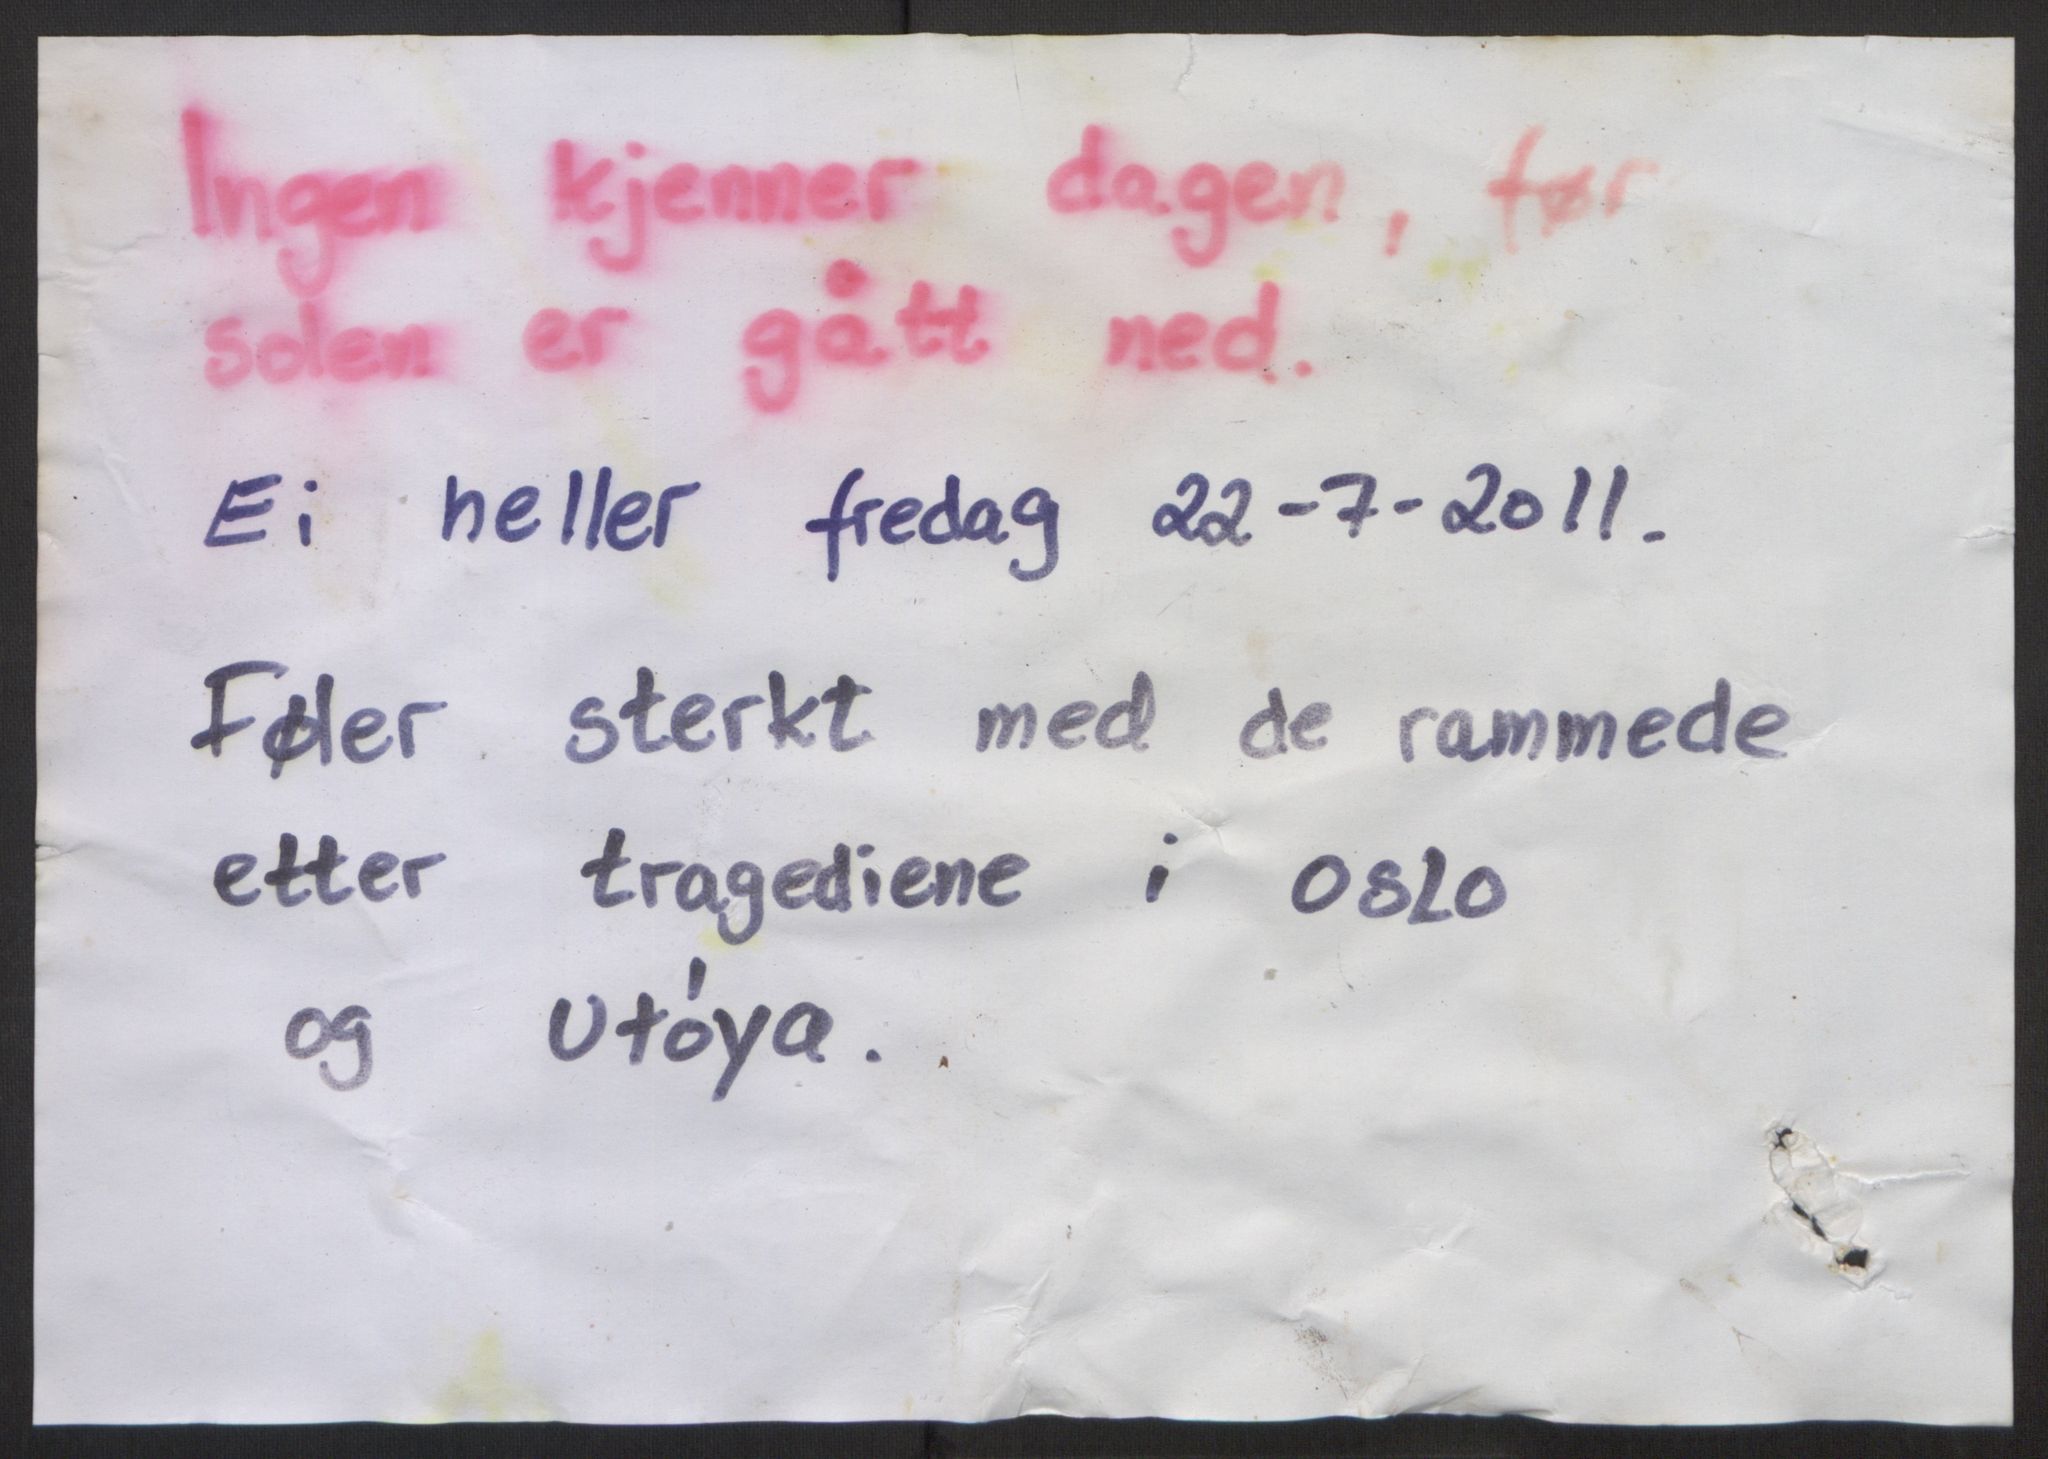 Ingen kjenner dagen, før
solen er gått ned.
Ei heller fredag 22-7-2011.
Føler sterkt med de rammede
etter tragediene i OSLO
og Utóya.